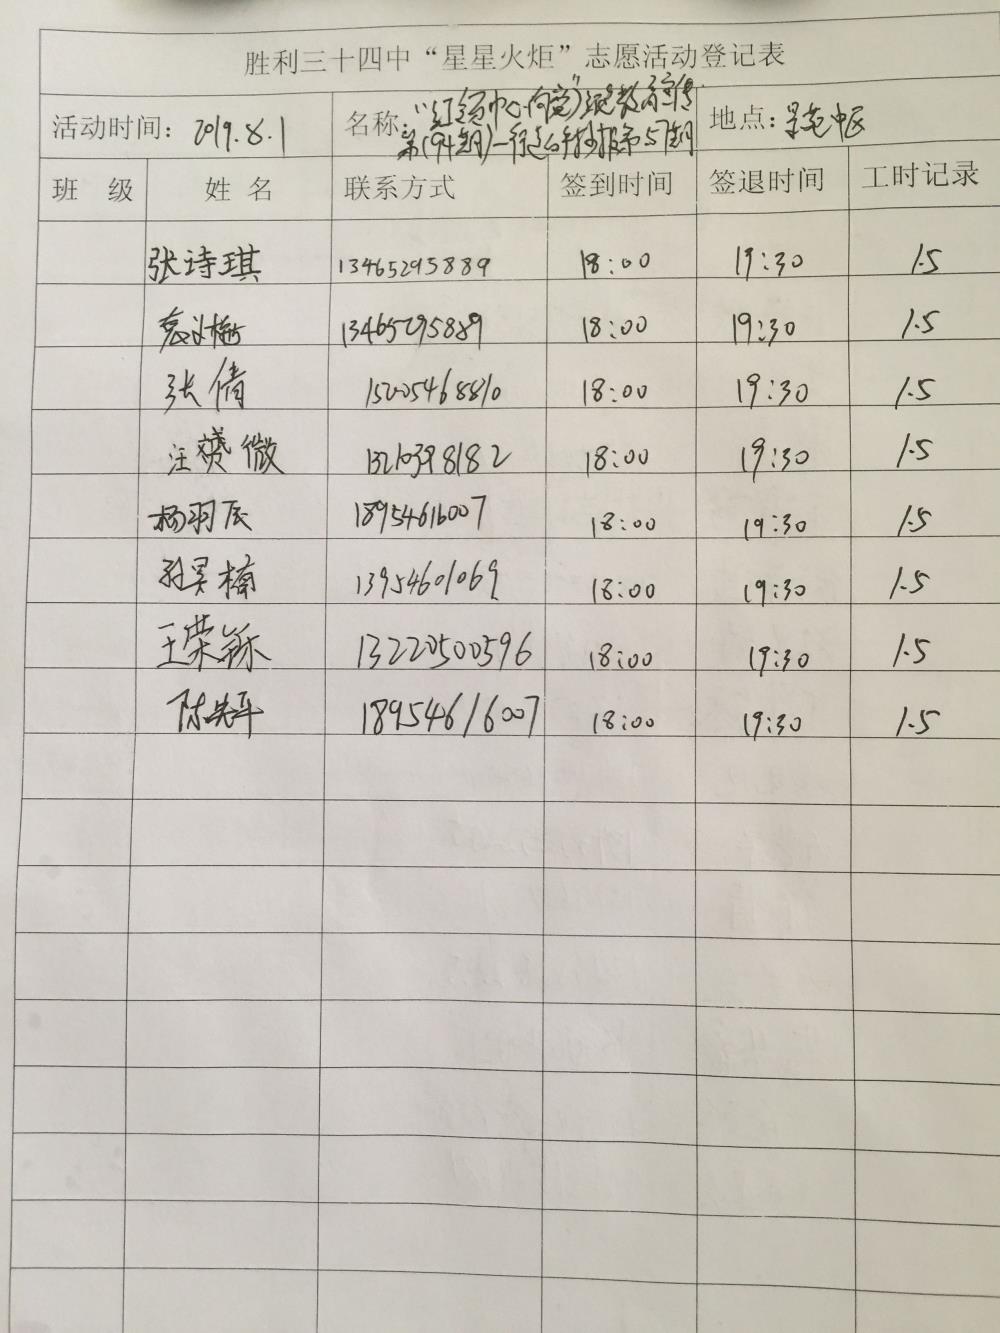 胜利三十四中“星星火炬”志愿活动登记表
活动时间：2019.8.1 名称：“红领巾心向党” 教育宣传 地点：
第(94期)一 手抄报第57期
班 级 姓 名 联系方式 签到时间 签退时间 工时记录
张诗琪 13465295889 18:00 19:30 1.5
13465295889 18:00 19:30 1.5
张倩 15005468810 18:00 19:30 1.5
汪赟微 13210398182 18:00 19:30 1.5
杨羽辰 18954616007 18:00 19:30 1.5
孙昊楠 13954601069 18:00 19:30 1.5
王荣稣 13220500596 18:00 19:30 1.5
陈先平 18954616007 18:00 19:30 1.5